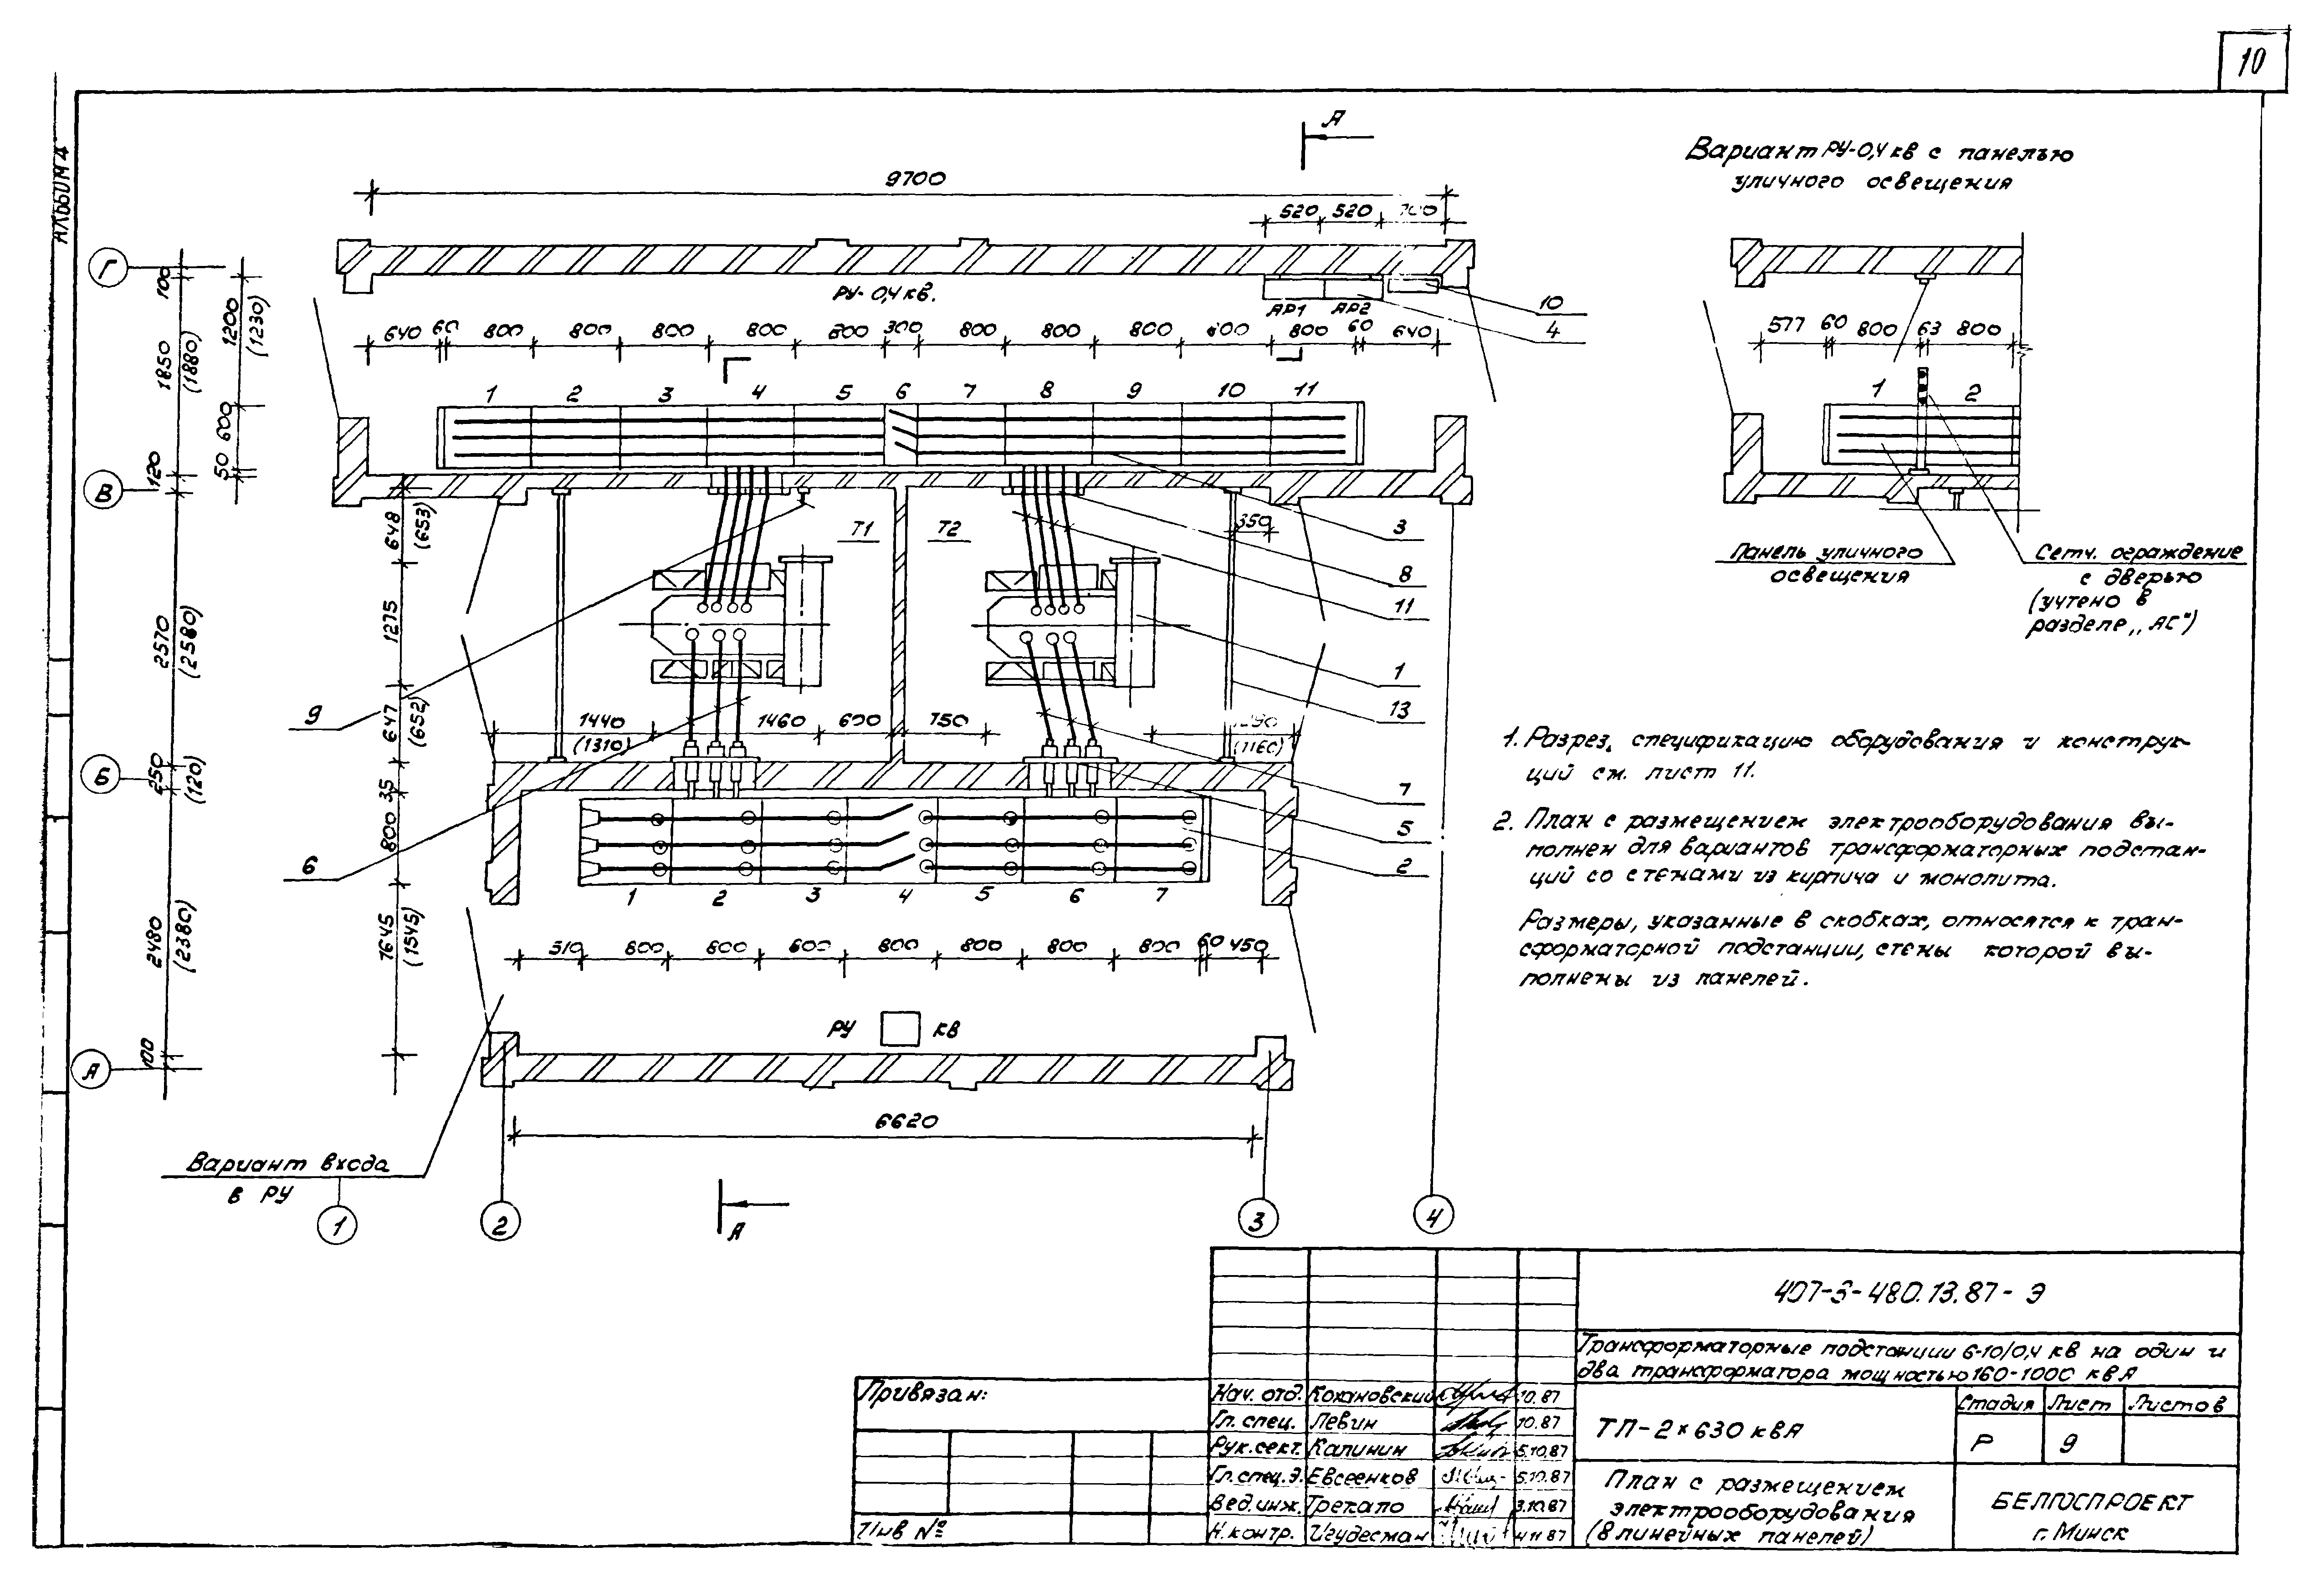 10
Альбом 4
А
9700
520 520
Вариант РУ-0,4 кв с панелью
уличного освещения
Г
100
1850
(1880)
1200
(1230)
600
50
120
В
РУ-0,4 кв.
ЯР1 ЯР2
10
4
640 60 800 800 800 800 800 300 800 800 800 800 800 60 640
1 2 3 4 5 6 7 8 9 10 11
577 60 800 63 800
1 2
Панель уличного
освещения
Сетч. ограждение
с дверью
(учтено в
разделе „АС")
648
(653)
1275
2570
(2580)
647
(652)
Т1 Т2
350
3
8
11
1
13
9
1440
(1310)
1460 600 750
1290
(1160)
7
5
2
6
Б
250
(120)
35
800
1 2 3 4 5 6 7
2480
(2380)
1645
(1545)
510 800 800 800 800 800 800 800 60 450
РУ кв
100
А
6620
Вариант входа
в РУ
1 2 3 4
А
1. Разрез, спецификацию оборудования и конструк-
ций см. лист 11.
2. План с размещением электрооборудования вы-
полнен для вариантов трансформаторных подстан-
ций со стенами из кирпича и монолита.
Размеры, указанные в скобках, относятся к тран-
сформаторной подстанции, стены которой вы-
полнены из панелей.
407-3-480.13.87-Э
Трансформаторные подстанции 6-10/0,4 кв на один и
два трансформатора мощностью 160-1000 квА
Привязан:
Инв №
Нач. отд. Кохановский 10.87
Гл. спец. Левин 10.87
Рук. сект. Калинин 5.10.87
Гл. спец. Э. Евсеенков 5.10.87
Вед. инж. Трекало 3.10.87
Н. контр. Игудесман 4.11.87
ТП-2×630 квА
Стадия Лист Листов
Р 9
План с размещением
электрооборудования
(8 линейных панелей)
БЕЛГОСПРОЕКТ
г. Минск